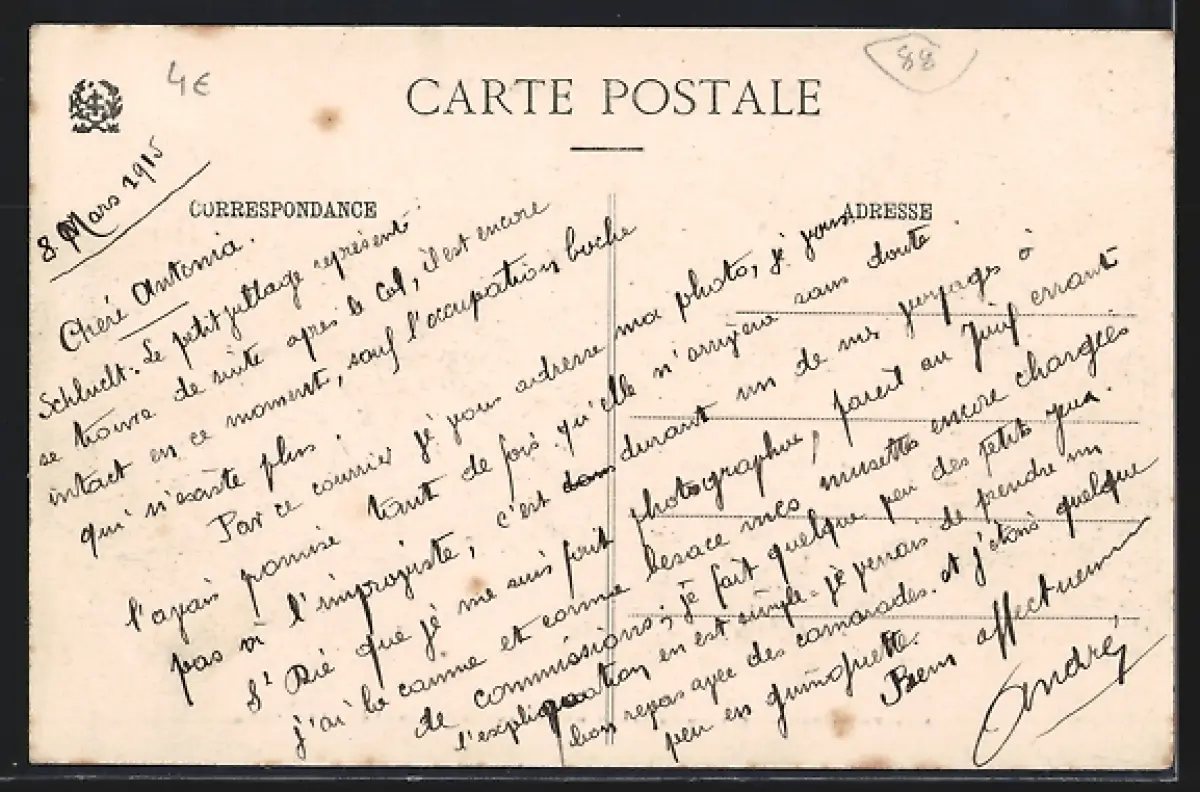 4€
88
CARTE POSTALE
8 Mars 1915
CORRESPONDANCE
ADRESSE
Cheré Antonia.
Schlucht. Le petit village représenté
se trouve de suite après le Col, il est encore
intact en ce moment, sauf l'occupation boche
qui n'existe plus.
Par ce courrier je vous adresse ma photo, je vous
l'avais promise tant de fois qu'elle n'arrivera sans doute
pas à l'improviste, c'est dans durant un de mes voyages à
St Dié que je me suis fait photographier, pareil au Juif errant
j'ai la canne et comme besace mes musettes encore chargées
de commissions, je fait quelque peu des petits yeux.
l'explication en est simple - je venais de prendre un
bon repas avec des camarades. et j'étais quelque
peu en guinguette.
Bien affectueux
André